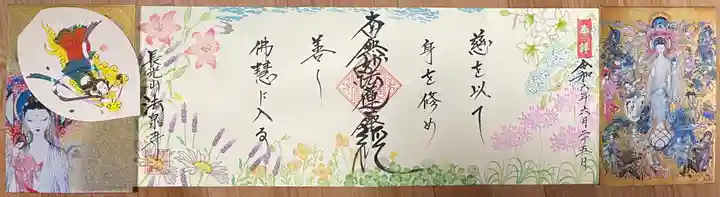 奉拝
令和六年六月二十五日
慈を以て
身を修め
南無妙法蓮華経
善く
佛慧に入る
長光山 法泉寺